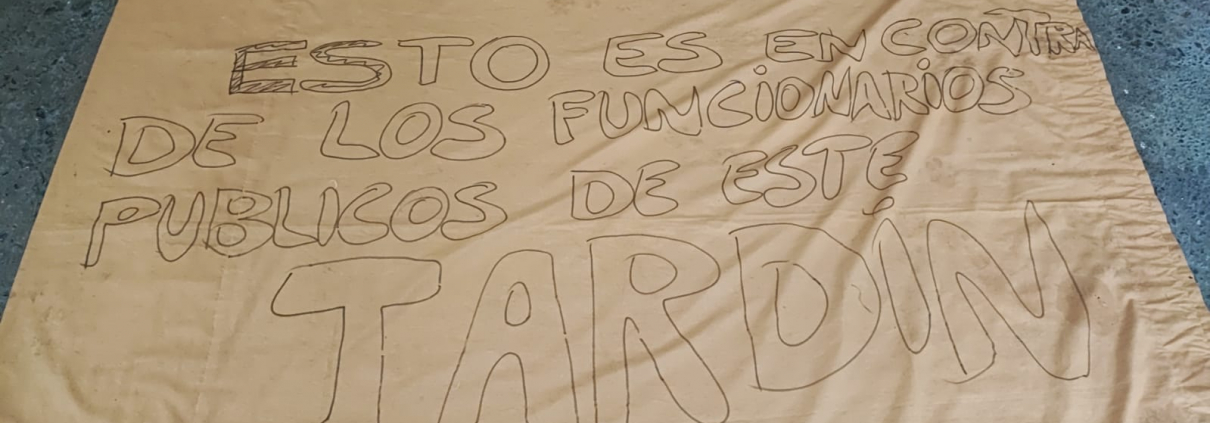 ESTO ES EN CONTRA
DE LOS FUNCIONARIOS
PUBLICOS DE ESTE
TARDÍN